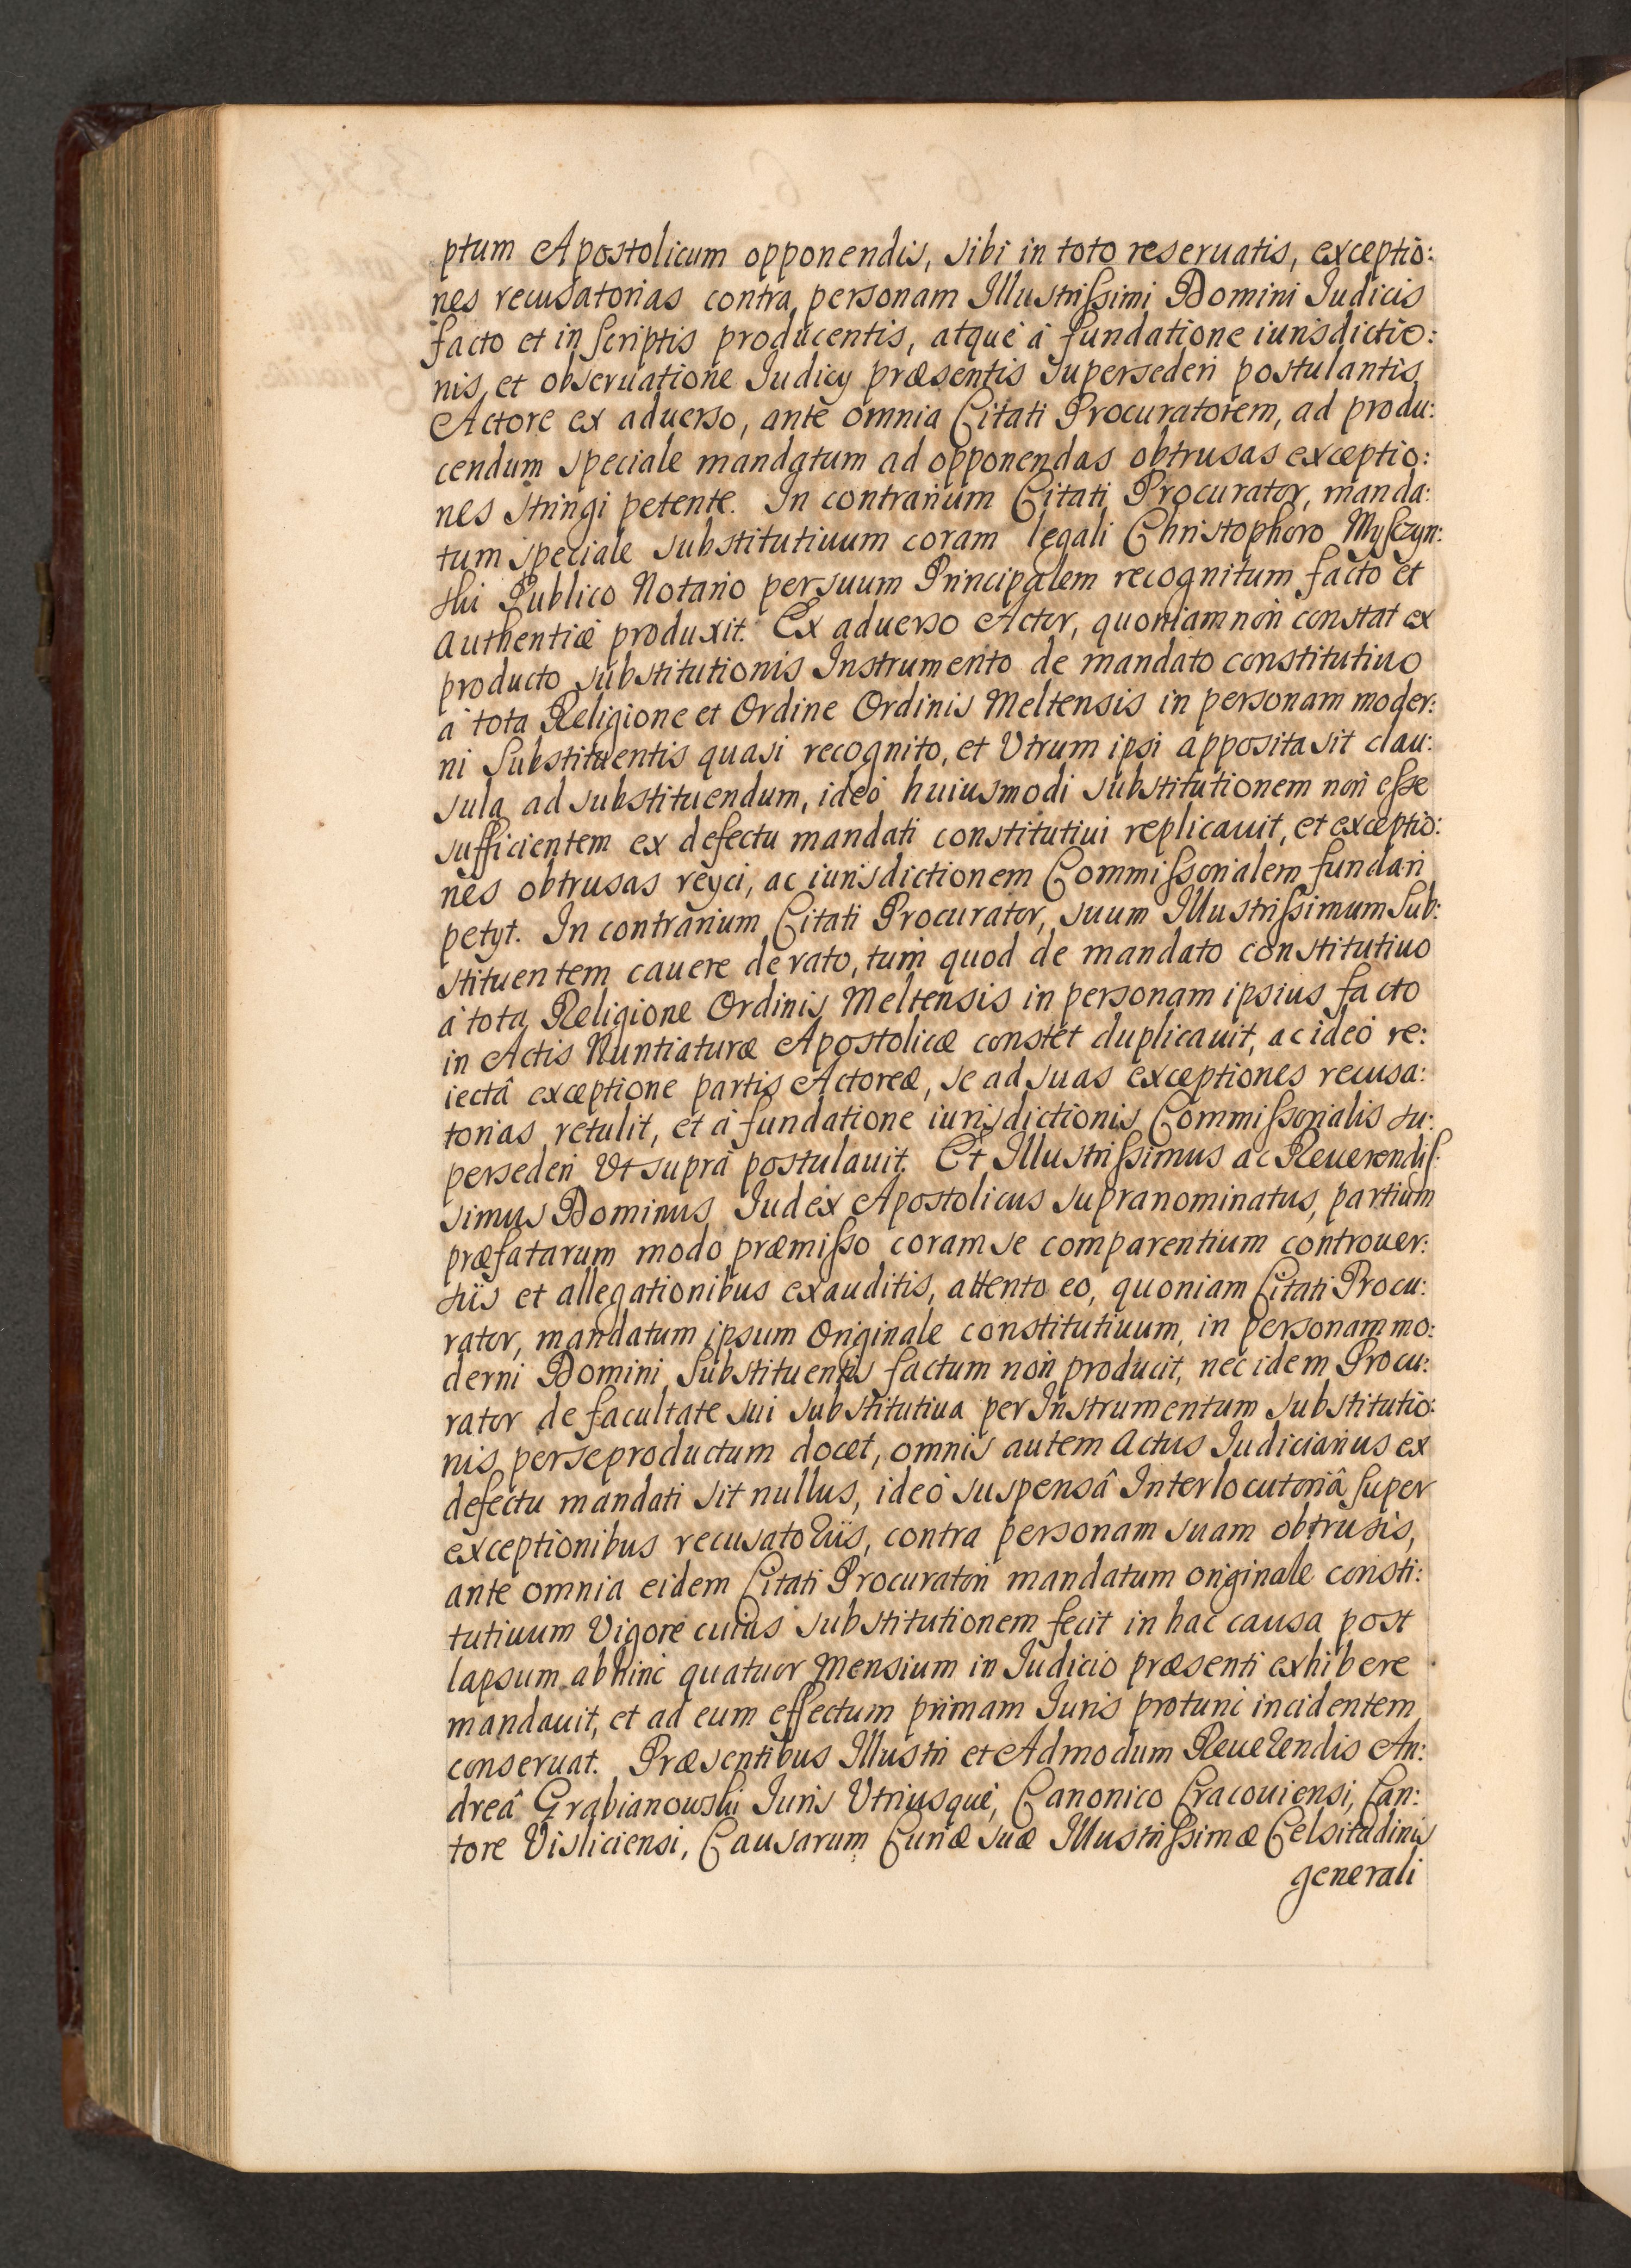 ptum Apostolicum opponendis, sibi in toto reseruatis, exceptio:
nes recusatorias contra personam Illustrissimi Domini Iudicis
facto et in scriptis producentis, atque à fundatione iurisdictio:
nis et obseruatione Iudicy præsentis supersederi postulantis
Actore ex aduerso, ante omnia Citati Procuratorem, ad produ:
cendum speciale mandatum ad opponendas obtrusas exceptio:
nes stringi petente. In contrarium Citati Procurator, manda:
tum speciale substitutiuum coram legali Christophoro Myszyn:
ski Publico Notario per suum Principalem recognitum facto et
authenticè produxit. Ex aduerso Actor, quoniam non constat ex
producto substitutionis Instrumento de mandato constitutiuo
à tota Religione et Ordine Ordinis Meltensis in personam moder:
ni Substituentis quasi recognito, et Vtrum ipsi apposita sit clau:
sula ad substituendum, ideò huiusmodi substitutionem non esse
sufficientem ex defectu mandati constitutiui replicauit, et exceptio:
nes obtrusas reyci, ac iurisdictionem Commissorialem fundari
petyt. In contrarium Citati Procurator, suum Illustrissimum Sub:
stituentem cauere de rato, tum quod de mandato constitutiuo
à tota Religione Ordinis Meltensis in personam ipsius facto
in Actis Nuntiaturæ Apostolicæ constet duplicauit, ac ideò re:
iectâ exceptione partis Actoreæ, se ad suas exceptiones recusa:
torias retulit, et à fundatione iurisdictionis Commissorialis su:
persederi Vt suprà postulauit. Et Illustrissimus ac Reuerendis:
simus Dominus Iudex Apostolicus supranominatus, partium
præfatarum modo præmisso coram se comparentium controuer:
siis et allegationibus exauditis, attento eo, quoniam Citati Procu:
rator, mandatum ipsum Originale constitutiuum in personam mo:
derni Domini Substituentis factum non producit, nec idem Procu:
rator de facultate sui substitutiua per Instrumentum substitutio:
nis per se productum docet, omnis autem actus Iudiciarius ex
defectu mandati sit nullus, ideò suspensâ Interlocutoriâ super
exceptionibus recusatoriis, contra personam suam obtrusis,
ante omnia eidem Citati Procuratori mandatum originale consti:
tutiuum Vigore cuius substitutionem fecit in hac causa post
lapsum abhinc quatuor Mensium in Iudicio præsenti exhibere
mandauit, et ad eum effectum primam Iuris protunc incidentem
conseruat. Præsentibus Illustri et Admodum Reuerendis An:
dreâ Grabianowski Iuris Vtriusque, Canonico Cracouiensi, Can:
tore Visliciensi, Causarum Curiæ suæ Illustrissimæ Celsitudinis
generali